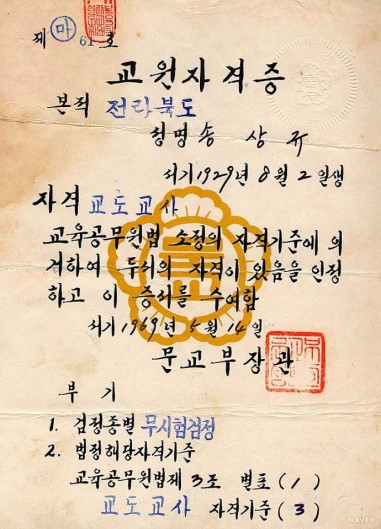 제 마 61 호
교원자격증
본적 전라북도
성명 송 상 규
서기 1929년 8월 2일생
자격 교도교사
교육공무원법 소정의 자격기준에 의
거하여 두서의 자격이 있음을 인정
하고 이 증서를 수여함
서기 1969년 5월 14일
문교부장관
부 기
1. 검정종별 무시험검정
2. 법정해당자격기준
교육공무원법제 3조 별표 (1)
교도교사 자격기준 (3)
NAVER